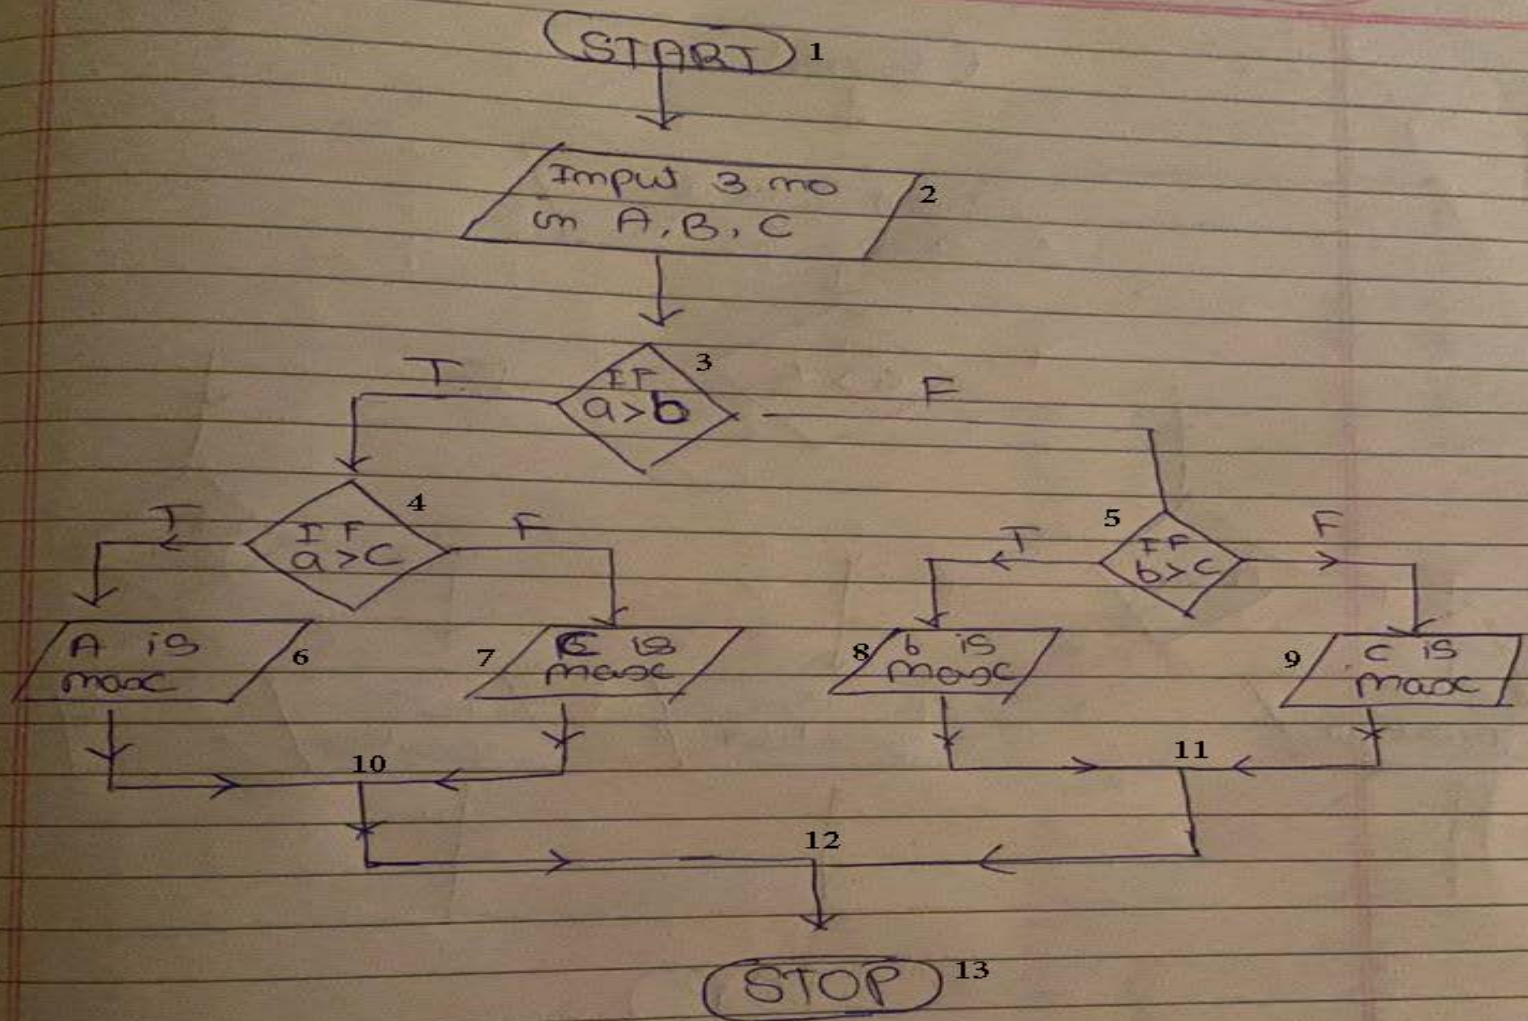 START 1
Input 3 no 2
in A, B, C
3
T IF F
a>b
4
T IF F
a>c
5
T IF F
b>c
A is 6
max
7 C is
max
8 b is
max
9 c is
max
10 11
12
STOP 13